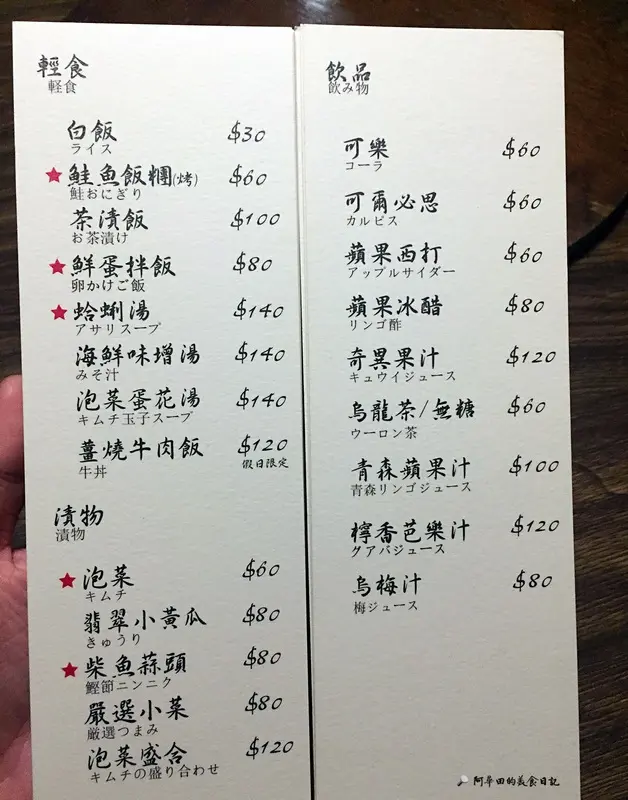 輕食
軽食
白飯 $30
ライス
★鮭魚飯糰(烤) $60
鮭おにぎり
茶漬飯 $100
お茶漬け
★鮮蛋拌飯 $80
卵かけご飯
★蛤蜊湯 $140
アサリスープ
海鮮味增湯 $140
みそ汁
泡菜蛋花湯 $140
キムチ玉子スープ
薑燒牛肉飯 $120
牛丼 假日限定
漬物
漬物
★泡菜 $60
キムチ
翡翠小黃瓜 $80
きゅうり
★柴魚蒜頭 $80
鰹節ニンニク
嚴選小菜 $80
厳選つまみ
泡菜盛合 $120
キムチの盛り合わせ
飲品
飲み物
可樂 $60
コーラ
可爾必思 $60
カルピス
蘋果西打 $60
アップルサイダー
蘋果冰醋 $80
リンゴ酢
奇異果汁 $120
キュウイジュース
烏龍茶/無糖 $60
ウーロン茶
青森蘋果汁 $100
青森リンゴジュース
檸香芭樂汁 $120
グアバジュース
烏梅汁 $80
梅ジュース
阿牟田的美食日記